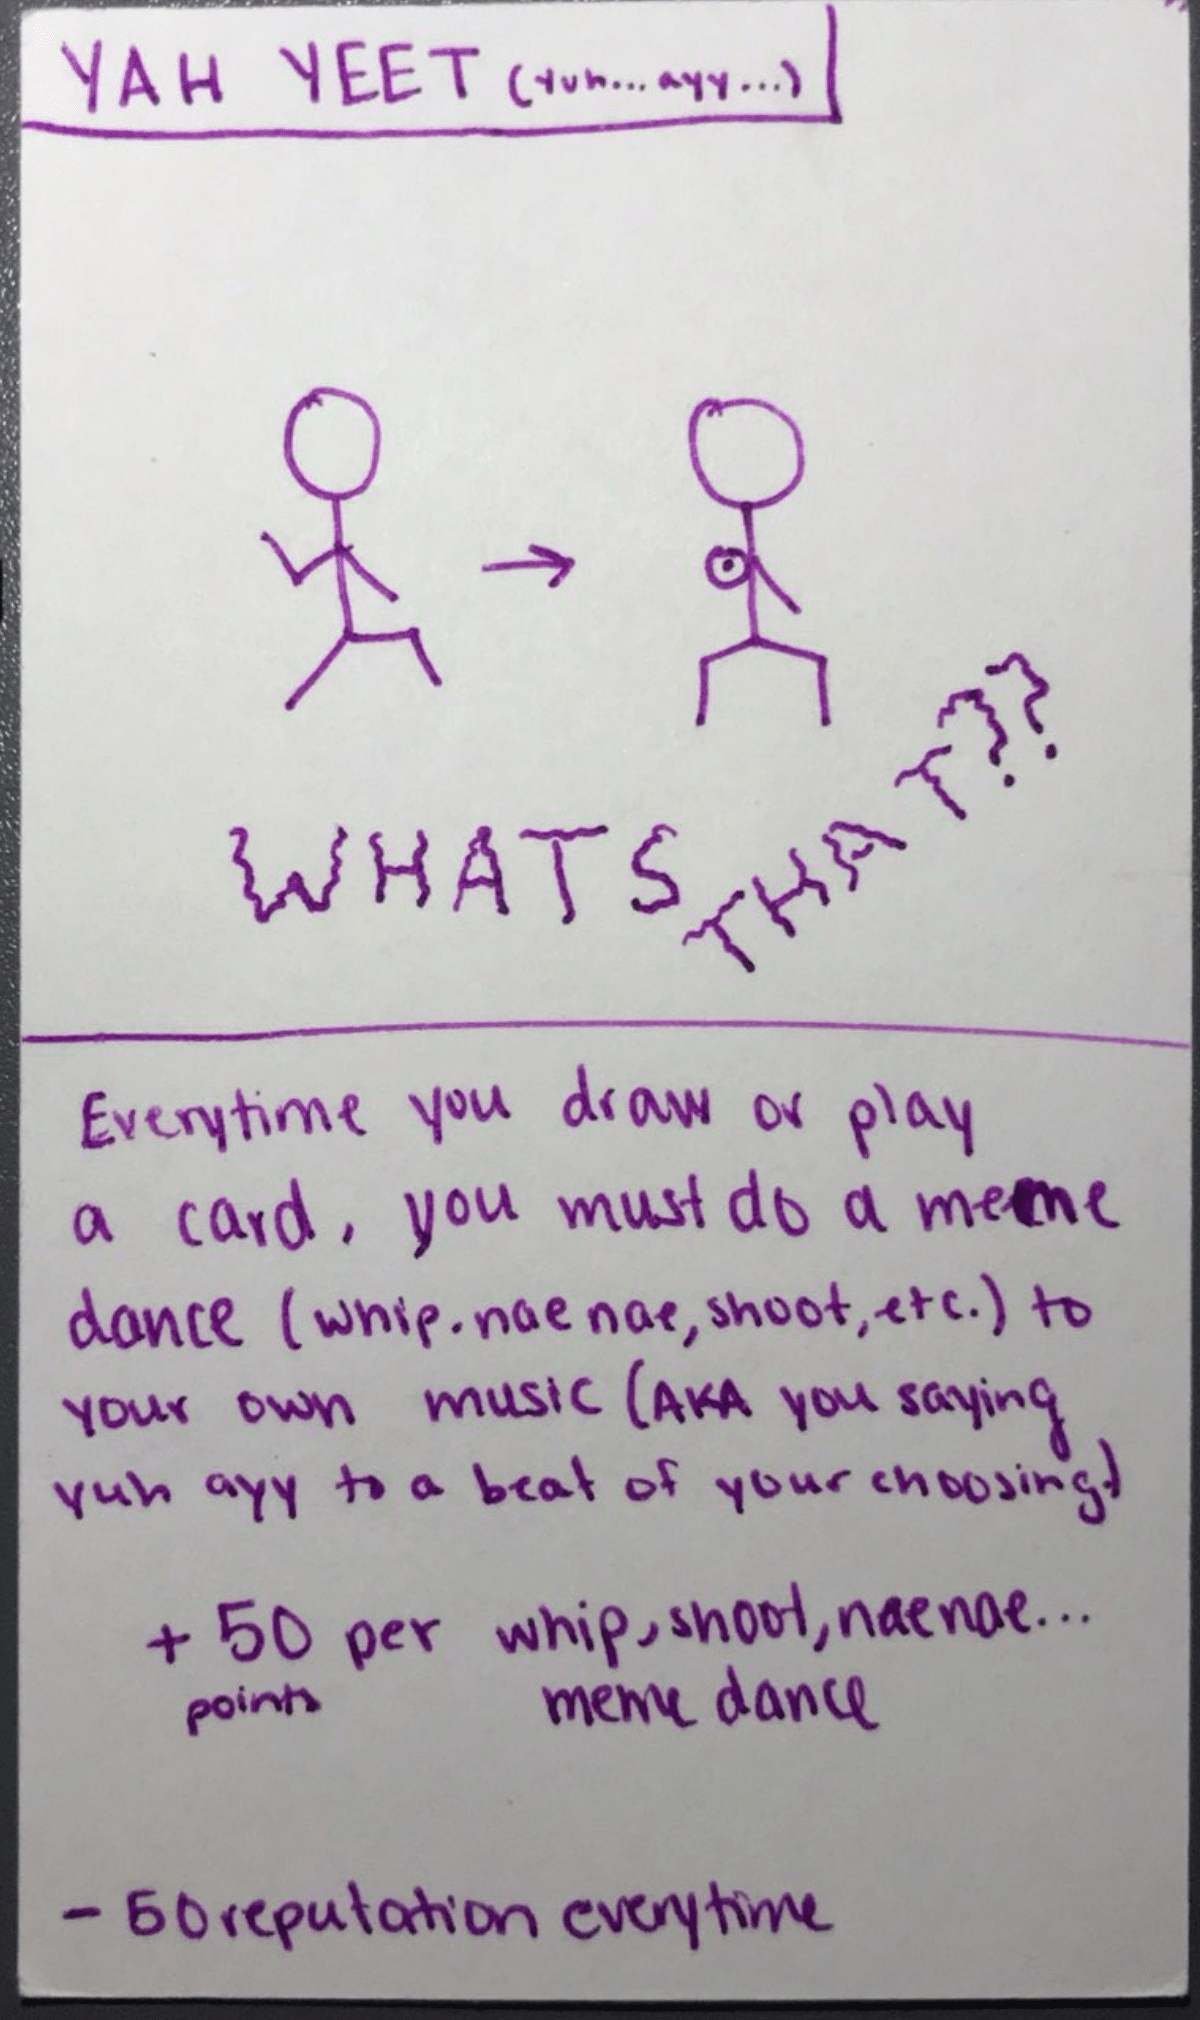 YAH YEET (yuh... ayy...)
WHATS THAT??
Everytime you draw or play
a card, you must do a meme
dance (whip. nae nae, shoot, etc.) to
your own music (AKA you saying
yuh ayy to a beat of your choosing)
+ 50 per whip, shoot, naenae...
points meme dance
- 50 reputation everytime